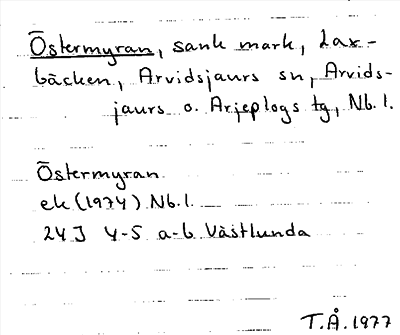 Östermyran, sank mark, Lax-
bäcken, Arvidsjaurs sn, Arvids-
jaurs o. Arjeplogs tg, Nb. l.
Östermyran
ek (1974) Nb. l.
24J 4-5 a-b Västlunda
T.Å. 1977